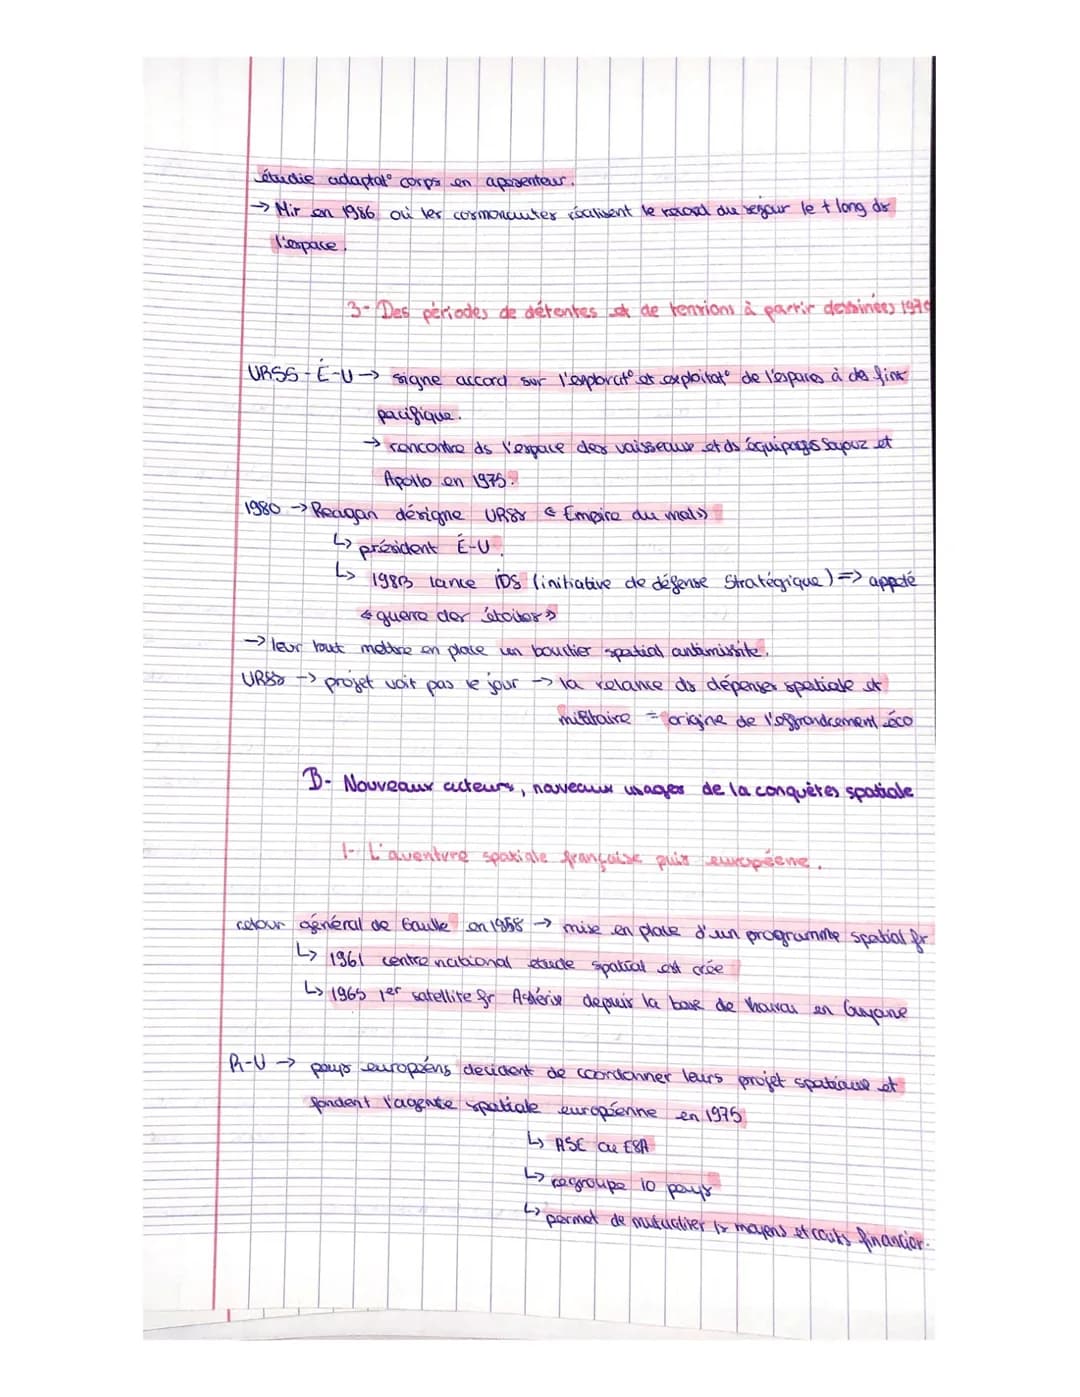 étudie adaptat° corps en apesenteur.
→ Mir en 1986 où les cosmonautes réalisent le record du séjour le + long ds
l'espace.
3- Des périodes de détentes et de tensions à partir des années 1970
URSS - É-U → signe accord sur l'explorat° et exploitat° de l'espaces à des fins
pacifique.
→ rencontre ds l'espace des vaisseaux et ds équipages Soyouz et
Apollo en 1975.
1980 → Reagan désigne URSS « Empire du mal »
↳ président É-U.
↳ 1983 lance IDS (initiative de défense Stratégique) => appelé
« guerre des étoiles »
→ leur tout mettre en place un bouclier spatial antimissile.
URSS → projet voit pas le jour → la relance ds dépenses spatiale et
militaire = origine de l'effrondrement éco
B- Nouveaux acteurs, nouveaux usages de la conquêtes spatiale
1- L'aventure spatiale française puis européene.
retour général de Gaulle en 1958 → mise en place d'un programme spatial fr
↳ 1961 centre national étude spatial est crée
↳ 1965 1er satellite fr Astérix depuis la base de en Guyane
R-U → pays européens decident de coordonner leurs projet spatiaux et
fondent l'agence spatiale européenne en 1975
↳ ASE ou ESA
↳ regroupe 10 pays
↳ permet de mutualiser ls moyens et couts financier.